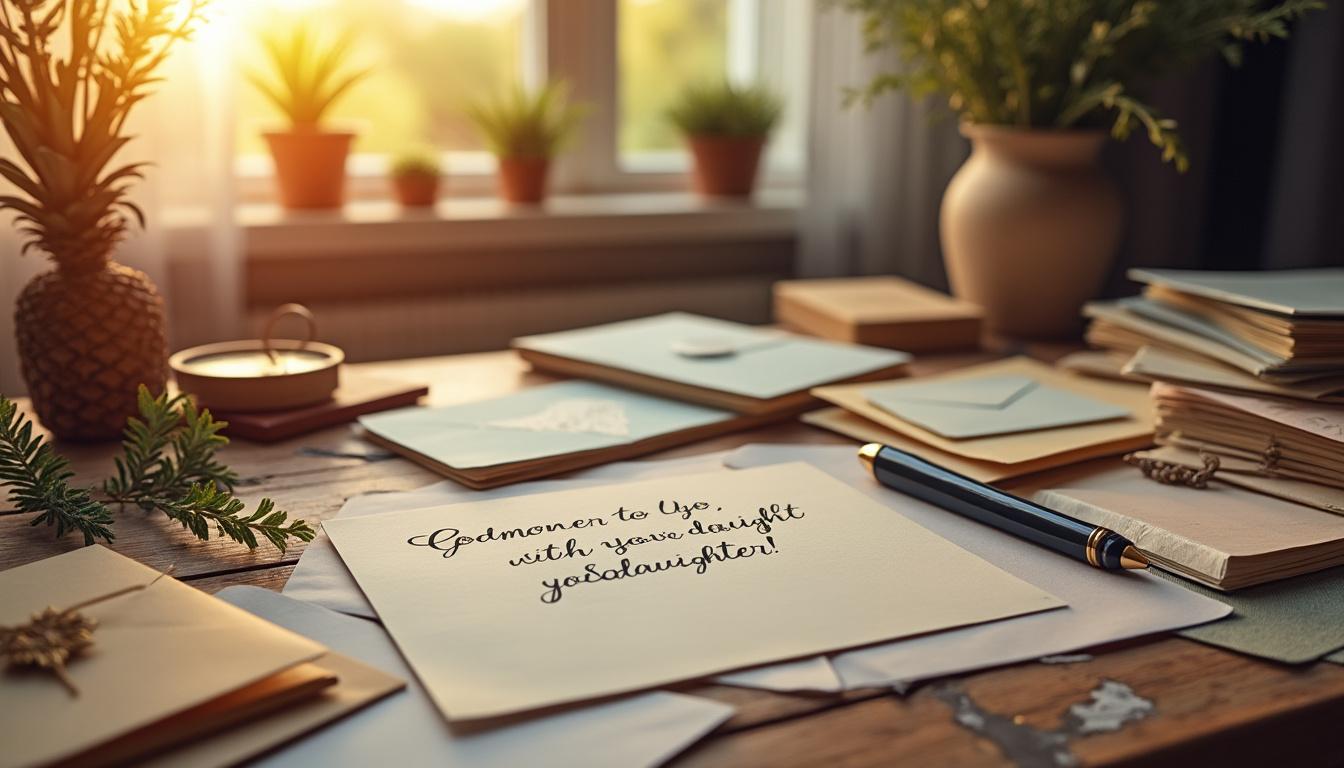 Godmoner to Uyo,
with youre dauight
yoSodauighter!